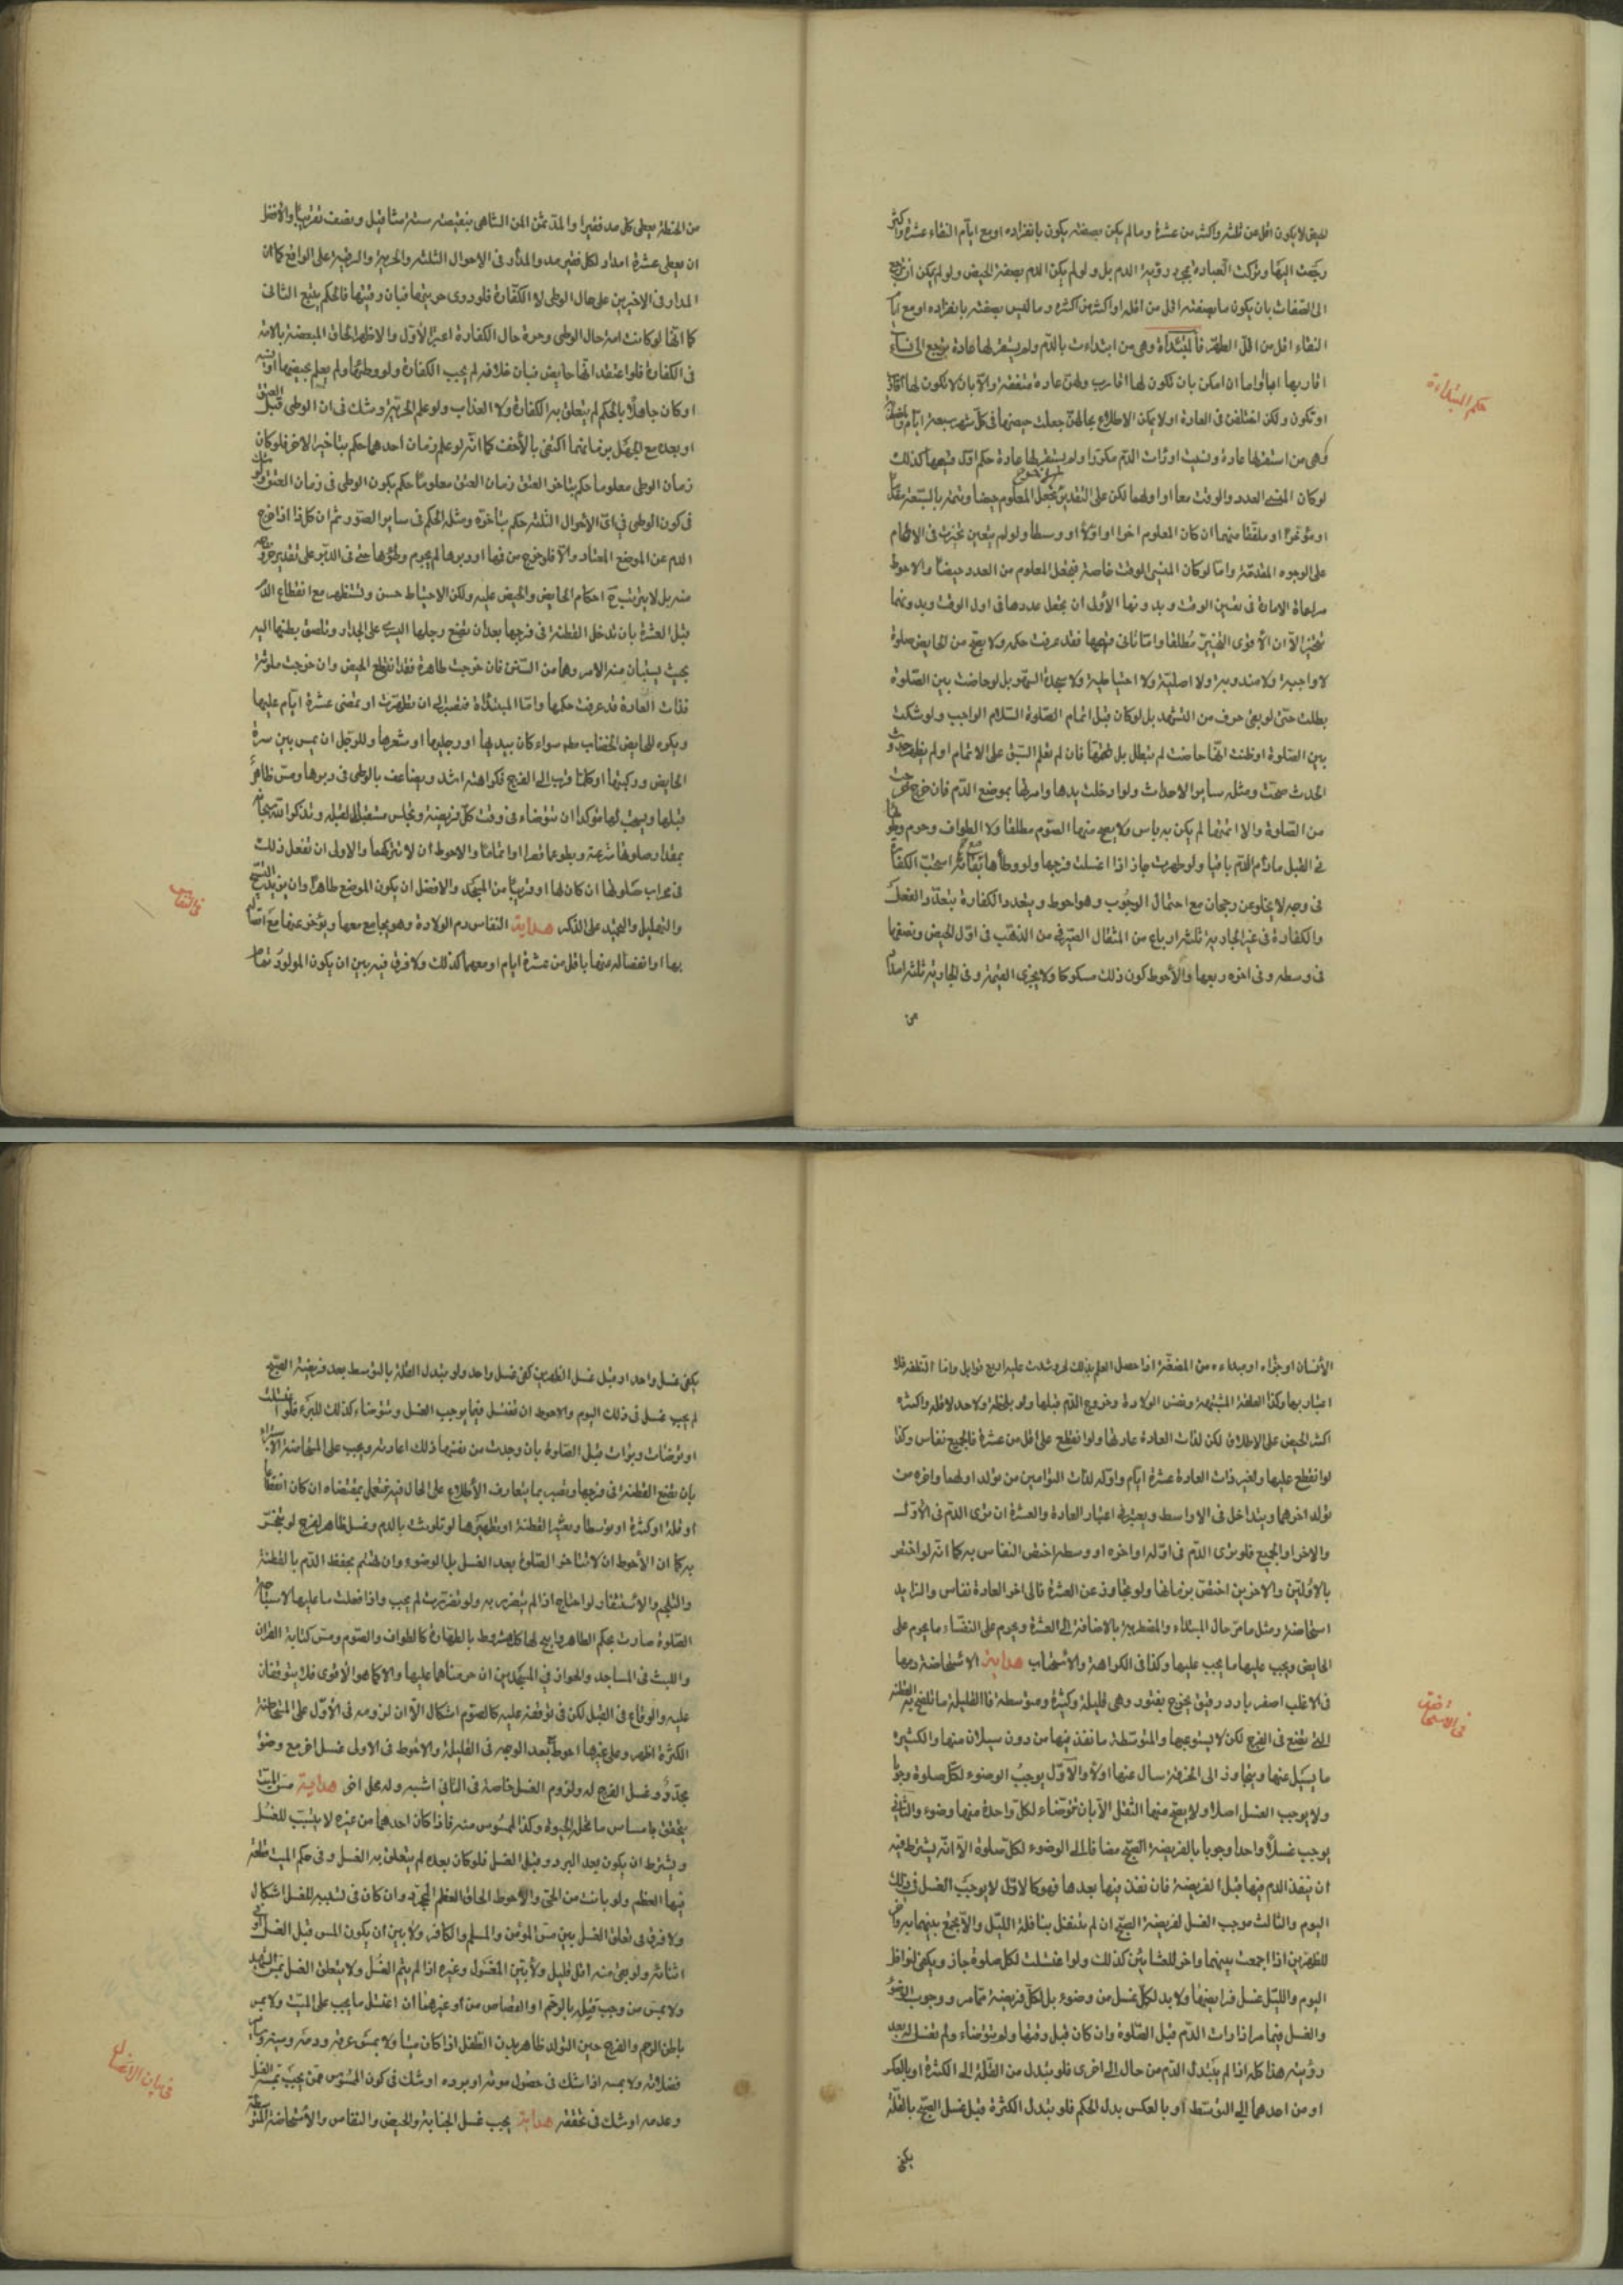 للحيض لا يكون اقل من ثلثة واكثر من عشرة وما لم يكن بصفته يكون بانفراده او مع ايام النقاء عشرة واكثر
رجعت اليها وتركت العبادة بمجرد رؤية الدم بل ولو لم يكن الدم بصفة الحيض ولو لم يكن ان ترجع
الى الصفات بان يكون ما بصفته اقل من اقله او اكثر من اكثره وما ليس بصفته بانفراده او مع ايام
النقاء اقل من اقل الطهر فالمبتدأة وهى من ابتدات بالدم ولم يستقر لها عادة ترجع الى نساء
اقاربها احياء او امواتا ان امكن بان تكون لها اقارب ولهن عادة متفقة والا بان لا تكون لها اقارب
حكم المبتداءة
او تكون ولكن اختلفن فى العادة او لا يمكن الاطلاع بحالهن جعلت حيضها فى كل شهر سبعة ايام
وهى من استقر لها عادة ونسيت او رات الدم مكررا ولم يستقر لها عادة حكم
لو كان المنسى العدد والوقت معا او اولهما لكن على التقديرين تجعل المعلوم حيضا وتتمه بالسبعة مقدما
او مؤخرا او ملفقا منهما ان كان المعلوم اخرا او اولا او وسطا ولو لم يتعين تخيرت فى الاتمام
على الوجوه المتقدمة واما لو كان المنسى الوقت خاصة فتجعل المعلوم من العدد حيضا والاحوط
مراعاة الامارة فى تعيين الوقت وبدونها الاولى ان يجعل عددها فى اول الوقت وبدونهما
تتخير الا ان الاقوى التخيير مطلقا واما ثانى قسميها فقد عرفت حكمه ولا يصح من الحايض صلوة
لا واجبة ولا مندوبة ولا اصلية ولا احتياطية ولا سجدة السهو بل لو حاضت بين الصلوة
بطلت حتى لو بقى حرف من التشهد بل لو كان قبل اتمام الصلوة السلام الواجب ولو شكت
بين الصلوة او ظنت انها حاضت لم تبطل بل تتمها فان لم تعلم السبق على الاتمام او لم يظهر حدث
الحدث صحت ومثله ساير الاحداث ولو ادخلت يدها وامرتها بموضع الدم فان خرج
من الصلوة والا اتمتها لم يكن به باس ولا يصح منها الصوم مطلقا ولا الطواف وحرم وطؤها
فى القبل مادام الدم باقيا ولو طهرت جاز اذا اغسلت فرجها ولو وطأها استحب الكفارة
فى وجه لا يخلو عن رجحان مع احتمال الوجوب وهو احوط ويتعدد الكفارة بتعدد الفعل
والكفارة فى غير الجارية ثلثة ارباع من المثقال الصيرفى من الذهب فى اول الحيض ونصفها
فى وسطه وفى اخره ربعها والاحوط كون ذلك مسكوكا ولا يجزى القيمة وفى الجارية ثلثة امداد
من
من الحنطة يعطى كل مد فقيرا والمد ثمن المن الشاهى بنقيصة ستة مثاقيل ونصف تقريبا والافضل
ان يعطى عشرة امداد لكل فقير مد والمدار فى الاحوال الثلثة والحرية والرقية على الواقع كما ان
المدار فى الاخيرين على حال الوطى لا الكفارة فلو روى حريتها فبان رقيتها فالحكم يتبع الثانى
كما انها لو كانت امة حال الوطى وحرة حال الكفارة اعتبر الاول والاظهر الحاق المبعضة بالامة
فى الكفارة فلو اعتقد انها حايض فبان خلافه لم يجب الكفارة ولو وطئها ولم يعلم بحيضها
او كان جاهلا بالحكم لم يتعلق به الكفارة ولا العذاب ولو علم الحرية وشك فى ان الوطى قبل العتق
او بعده مع الجهل بزمانهما اكتفى بالاخف كما انه لو علم زمان احدهما حكم بتاخير الاخر فلو كان
زمان الوطى معلوما حكم بتاخر العتق زمان العتق معلوما حكم بكون الوطى فى زمان العتق ولو شك
فى كون الوطى فى اى الاحوال الثلثة حكم بتأخره ومثله الحكم فى ساير الصور ثم ان كل ذا اذا خرج
الدم عن الموضع المعتاد والا فلو خرج من فمها او دبرها لم يحرم وطؤها حتى فى الدبر على تقدير خروجه
منه بل لا يترتب ح احكام الحايض والحيض عليه ولكن الاحتياط حسن وتستظهر مع انقطاع الدم
قبل العشرة بان تدخل القطنة فى فرجها بعد ان تضع رجلها اليسرى على الجدار وتلصق بطنها اليه
بحيث يستبان منه الامر وهما من السنن فان خرجت طاهرة فقد انقطع الحيض وان خرجت ملوثة
فذات العادة قد عرفت حكمها واما المبتداة فتصبر الى ان تطهرت او تمضى عشرة ايام عليها
ويكره للحايض الخضاب مطم سواء كان بيديها او رجليها او شعرها وللرجل ان يمس بين سرة
الحايض وركبتها وكلما قرب الى الفرج فكراهته اشد ويضاعف بالوطى فى دبرها ومس ظاهر
قبلها ويستحب لها مؤكدا ان تتوضاء فى وقت كل فريضة وتجلس مستقبلا للقبلة وتذكر الله سبحانه
بمقدار صلوتها شرعة وبطوءا قصرا او اتماما والاحوط ان لا تتركها والاولى ان تفعل ذلك
فى محراب صلوتها ان كان لها او قريبا من المسجد والافضل ان يكون الموضع طاهرا وان يزيد التسبيح
والتهليل والتحميد على الذكر هداية النفاس دم الولادة وهو يجامع معها ويؤخر عنها مع اتصاله
فى النفاس
بها او انفصاله عنها باقل من عشرة ايام او معهما كذلك ولا فرق فيه بين ان يكون المولود تمام
الانسان او جزءه او مبداءه من المضغة اذا حصل العلم بذلك اربع قوابل واما النطفة فلا
اعتبار بها وكذا العلقة المشتبهة ونفس الولادة وخروج الدم قبلها ولو بلحظة ولا حد لاقله واكثره
اكثر الحيض على الاطلاق لكن لذات العادة عادتها ولو انقطع على اقل من عشرة فالجميع نفاس وكذا
لو انقطع عليها ولغير ذات العادة عشرة ايام واوله لذات التوامين من تولد اولهما واخره من
تولد اخرهما ويتداخل فى الاواسط ويعتبر فى اعتبار العادة والعشرة ان ترى الدم فى الاول
والاخر او الجميع فلو ترى الدم فى اوله او اخره او وسطه اختص النفاس به كما انه لو اختص
بالاولين والاخرين اختص بزمانها ولو تجاوز عن العشرة فالى اخر العادة نفاس والزايد
استحاضة ومثل ما مر حال المبتداء والمضطربة بالاضافة الى العشرة ويحرم على النفساء ما يحرم على
الحايض ويجب عليها ما يجب عليها وكذا فى الكراهة والاستحباب هداية الاستحاضة دمها
فى الاغلب اصفر بارد رقيق يخرج بفتور وهى قليلة وكثيرة ومتوسطة فالقليلة ما تلطخ به القطنة
فى الاستحاضة
التى تضع فى الفرج لكن لا يستوعبها والمتوسطة ما نفذ فيها من دون سيلان منها والكثيرة
ما يسيل عنها ويتجاوز الى الخرقة سال عنها اولا والاول يوجب الوضوء لكل صلوة وجوبا
ولا يوجب الغسل اصلا ولا يصح منها النفل الا بان تتوضاء لكل واحدة منها وضوء والثانى
يوجب غسلا واحدا وجوبا بالفريضة الصبح مضافا الى الوضوء لكل صلوة الا انه يشترط فيه
ان ينفذ الدم فيها قبل الفريضة فان نفذ فيها بعدها فهو كالاول لا يوجب الغسل فى ذلك
اليوم والثالث موجب الغسل لفريضة الصبح ان لم تتنفل بنافلة الليل والا تجمع بينهما به واخر
للظهرين اذا جمعت بينهما واخر للعشائين كذلك ولو اغتسلت لكل صلوة جاز ويكفى لنوافل
اليوم والليل غسل فرايضها ولا بد لكل غسل من وضوء بل لكل فريضة مما مر ووجوب الوضوء
والغسل فيما مر اذا رات الدم قبل الصلوة وان كان قبل وقتها ولم تتوضاء ولم تغسل له بعد
رؤيته هذا كله اذا لم يتبدل الدم من حال الى اخرى فلو تبدل من القلة الى الكثرة او بالعكس
او من احدهما الى التوسط او بالعكس بدل الحكم فلو تبدل الكثرة قبل غسل الصبح بالقلة
يكفى
يكفى غسل واحد او قبل غسل الظهرين كفى غسل واحد ولو تبدل القلة بالتوسط بعد فريضة الصبح
لم يجب غسل فى ذلك اليوم والاحوط ان تغتسل فيما يوجب الغسل وتتوضاء كذلك للبرء فلو اغتسلت
او توضات وبرات قبل الصلوة بان وجدت من نفسها ذلك اعادته ويجب على المستحاضة الاستبراء
بان تضع القطنة فى فرجها وتصبر بما يتعارف الاطلاع على الحال فيه فتعمل بمقتضاه ان كان انقطاعا
او قلة او كثرة او توسطا وتغير القطنة او تطهيرها لو تلوث بالدم وغسل ظاهر الفرج لو تنجس
به كما ان الاحوط ان لا تتاخر الصلوة بعد الغسل بل الوضوء وان تهتم بحفظ الدم بالقطنة
والتلجم والاستثفار ولو احتاج اذا لم يتضرر به ولو تضررت لم يجب واذا فعلت ما عليها لاستباحة
الصلوة صارت بحكم الطاهر وابيح لها كل مشروط بالطهارة كالطواف والصوم ومس كتابة القران
واللبث فى المساجد والجواز فى المسجدين ان حرمناهما عليها والا كما هو الاقوى فلا يتوقفان
عليه والوقاع فى القبل لكن فى توقفه عليه كالصوم اشكال الا ان لزومه فى الاول على المستحاضة
الكثيرة اظهر وعلى غيرها احوط بعد الوجه فى القليلة والاحوط فى الاولى غسل اخر مع وضوء
مجدد وغسل الفرج له ولزوم الغسل خاصة فى الثانى اشبه وله محل اخر هداية مس الميت
يتحقق بامساس ما تحله الحيوة وكذا الممسوس منه فاذا كان احدهما من غيره لا يثبت للغسل
ويشترط ان يكون بعد البرد وقبل الغسل فلو كان بعده لم يتعلق به الغسل وفى حكم الميت قطعة
فيها العظم ولو بانت من الحى والاحوط الحاق العظم المجرد وان كان فى تسبيبه للغسل اشكال
ولا فرق فى تعلق الغسل بين مس المؤمن والمسلم والكافر ولا بين ان يكون المس قبل الغسل او فى
اثنائه ولو بقى منه اقل قليل ولا بين المغسول وغيره اذا لم يتم الغسل ولا يتعلق الغسل بمس الشهيد
ولا بمس من وجب قتله بالرجم او القصاص من او غيرهما ان اغتسل ما يجب على الميت ولا بمس
باطن الرحم والفرج حين التولد ظاهر بدن الطفل اذا كان ميتا ولا بمس عرقه ودمه
فضلاته ولا بمسه اذا شك فى حصول موته او برده او شك فى كون الممسوس ممن يجب بمسه الغسل
وعدمه او شك فى تحققه هداية يجب غسل الجنابة والحيض والنفاس والاستحاضة المتوسطة
فى بيان الاغسال